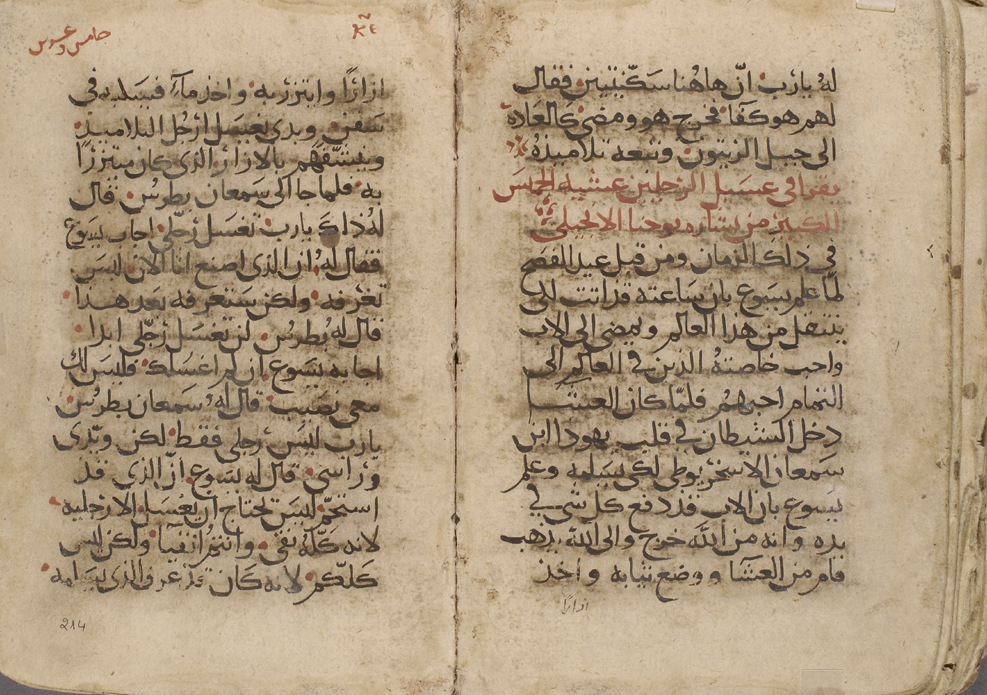 له يارب ان هاهنا سكينتين فقال
لهم هو كفا فخرج هو ومضى كالعادة
الى جبل الزيتون وتبعه تلاميذه
يقرا في غسيل الرجلين عشية الخميس
الكبير من بشارة يوحنا الانجيلي
في ذلك الزمان ومن قبل عيد الفصح
لما علم يسوع بان ساعته قد اتت لكي
ينتقل من هذا العالم ويمضى الى الاب
واحب خاصته الذين في العالم الى
التمام احبهم فلما كان العشا
دخل الشيطان في قلب يهودا ابن
سمعان الاسخريوطى لكى يسلمه وعلم
يسوع بان الاب قد دفع كل شي في
يده وانه من الله خرج والى الله يذهب
قام من العشا ووضع ثيابه واخذ
ازارًا
خامس وعشرين
ازارًا واتزر به واخذ مآء فسبله في
سفن وبدى يغسل ارجل التلاميذ
وينشفهم بالازار الذى كان متزرًا
به فلما جا الى سمعان بطرس قال
له ذاك يارب تغسل رجلي اجاب يسوع
فقال له ان الذى اصنع انا الان ليس
تعرفه ولكن ستعرفه بعد هذا
قال له بطرس لن تغسل رجلي ابدا
اجابه يسوع ان لم اغسلك فليس لك
معي نصيب قال له سمعان بطرس
يارب ليس رجلي فقط لكن ويدى
وراسي قال له يسوع ان الذي قد
استحم ليس يحتاج ان يغسل الا رجليه
لانه كله نقي وانتم انقيا ولكن ليس
كلكم لانه كان قد عرف الذى يسلمه
214